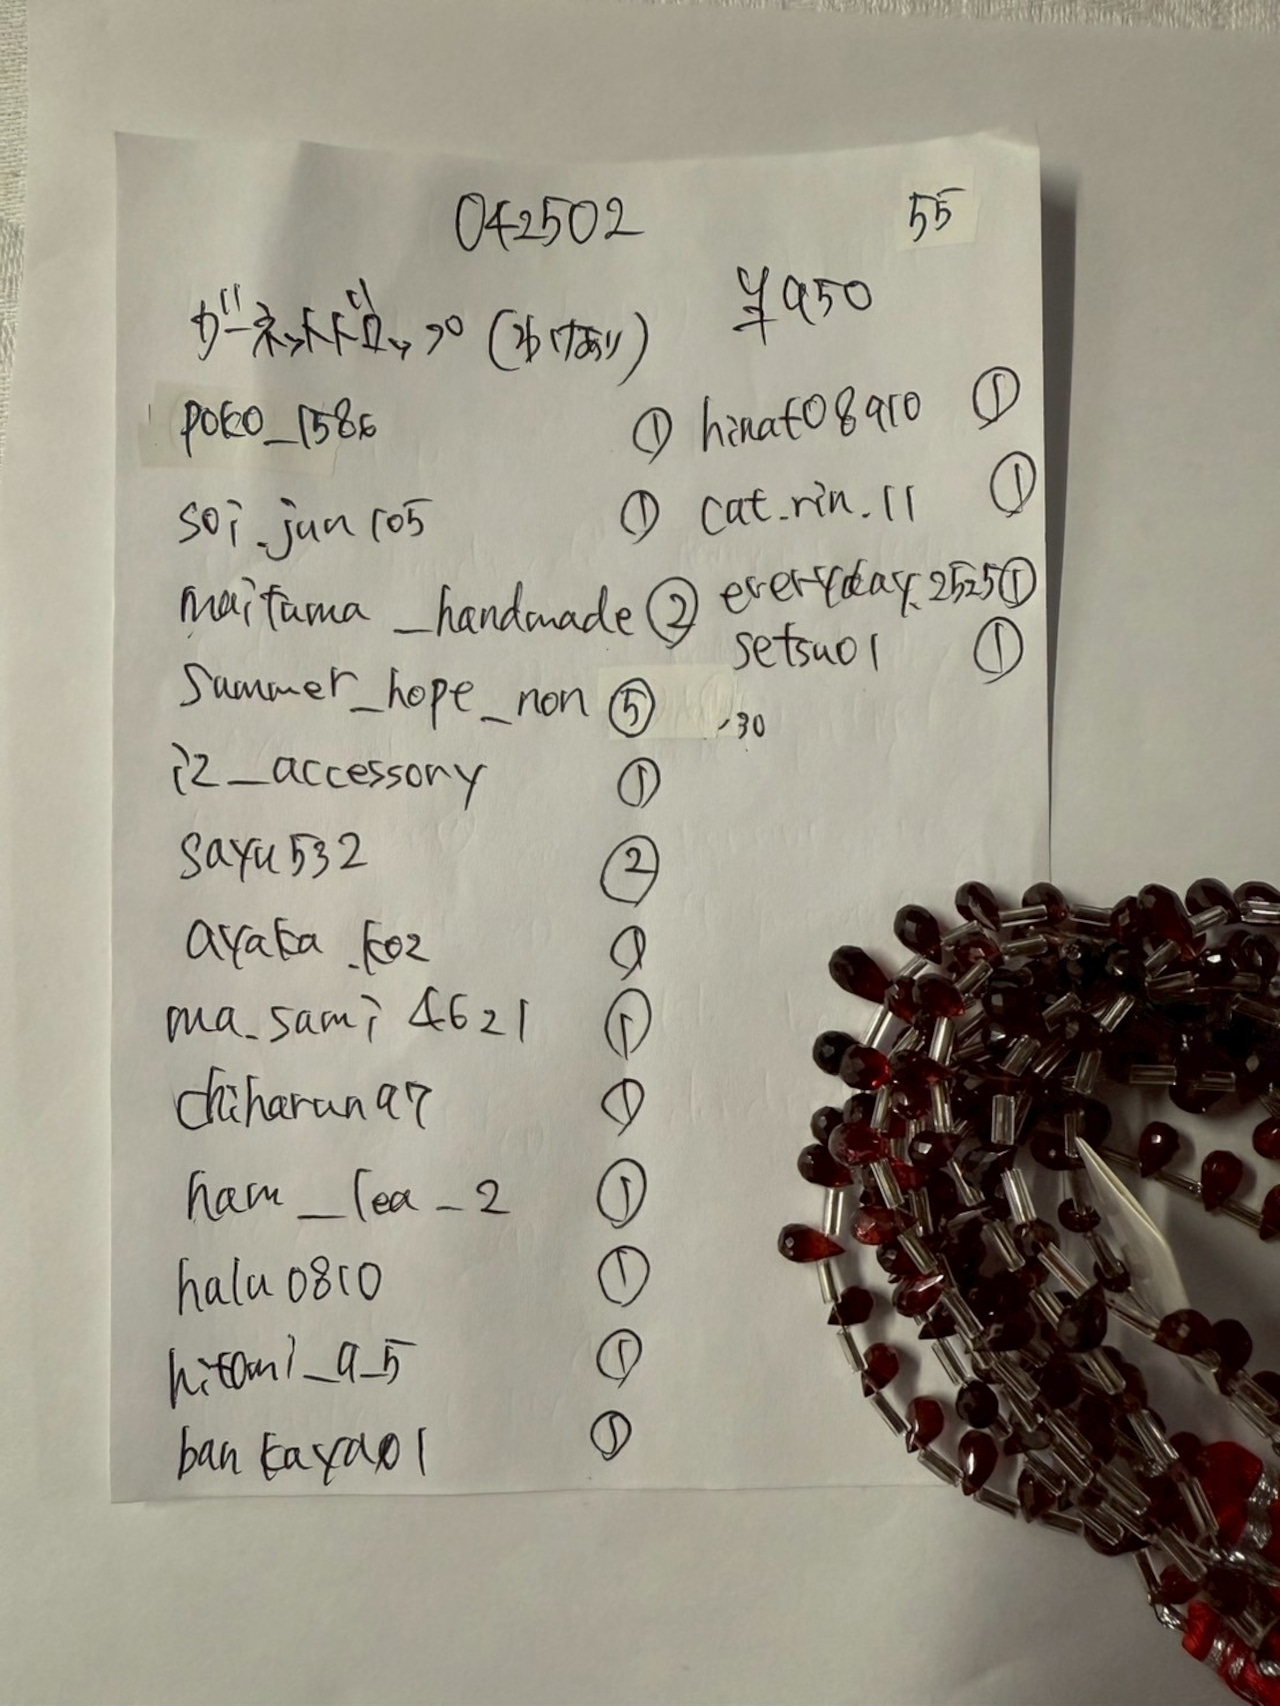 042502
55
ガーネットドロップ (わけあり)
¥950
poko_1586 ①
soi.jun105 ①
maitama_handmade ②
summer_hope_non ⑤
i2_accessory ①
sayu532 ②
ayaka.ko2 ①
ma_sami4621 ①
chiharun97 ①
ham_lea_2 ①
halu0810 ①
hitomi_a_5 ①
bankaya01 ①
hinat08910 ①
cat_rin_11 ①
everyday.2525 ①
setsu01 ①
30